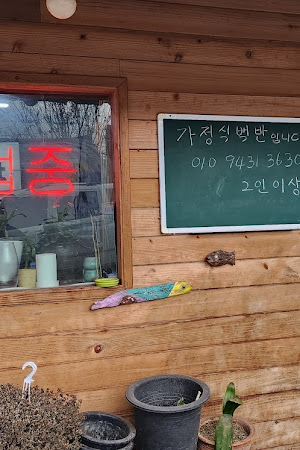 업중
가정식백반입니다
010 9431 3630
2인이상